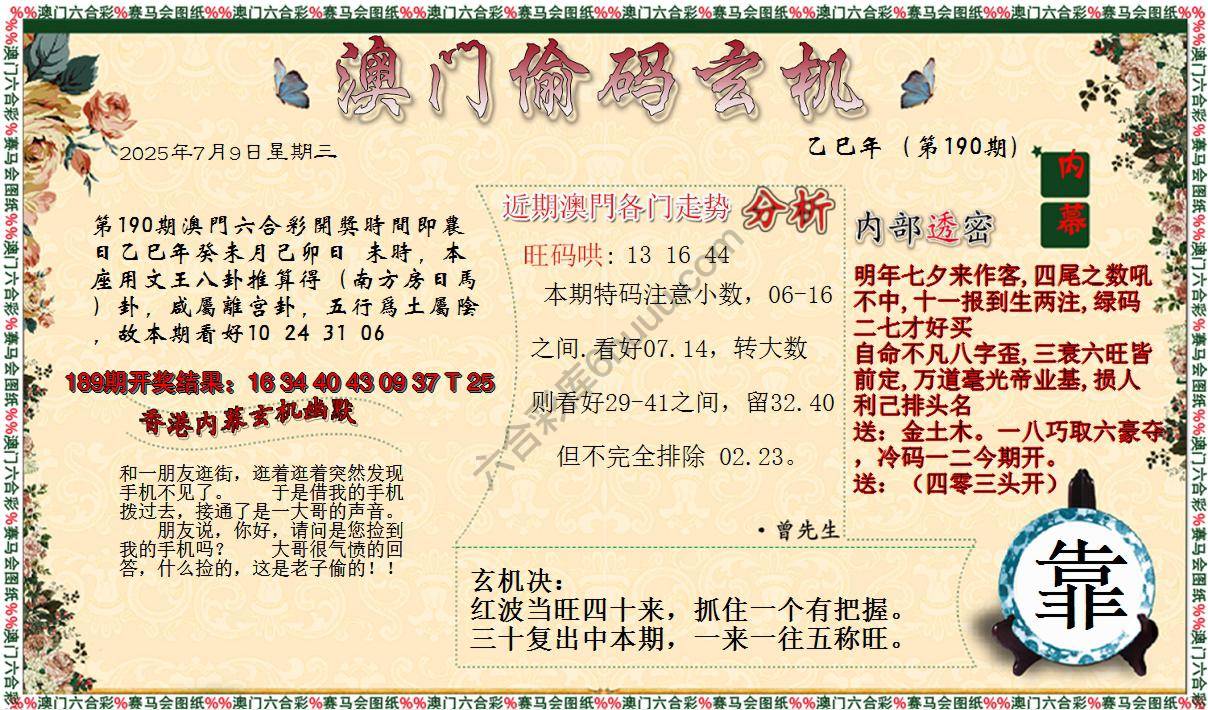 %%澳门六合彩%赛马会图纸%%澳门六合彩%赛马会图纸%%澳门六合彩%赛马会图纸%%澳门六合彩%赛马会图纸%%澳门六合彩%赛马会图纸%%澳门六合彩%赛马会图纸%%
澳门偷码玄机
2025年7月9日星期三
乙巳年（第190期）
内幕
第190期澳門六合彩開獎時間即農
日乙巳年癸未月己卯日 未時，本
座用文王八卦推算得（南方房日馬
）卦，咸屬離宫卦，五行爲土屬陰
，故本期看好10 24 31 06
189期开奖结果：16 34 40 43 09 37 T 25
香港内幕玄机幽默
和一朋友逛街，逛着逛着突然发现
手机不见了。 于是借我的手机
拨过去，接通了是一大哥的声音。
朋友说，你好，请问是您捡到
我的手机吗？ 大哥很气愤的回
答，什么捡的，这是老子偷的！！
近期澳門各门走势 分析
旺码哄: 13 16 44
本期特码注意小数，06-16
之间.看好07.14，转大数
则看好29-41之间，留32.40
但不完全排除 02.23。
·曾先生
内部透密
明年七夕来作客,四尾之数吼
不中,十一报到生两注,绿码
二七才好买
自命不凡八字歪,三衰六旺皆
前定,万道毫光帝业基,损人
利己排头名
送：金土木。一八巧取六豪夺
，冷码一二今期开。
送：（四零三头开）
玄机决：
红波当旺四十来，抓住一个有把握。
三十复出中本期，一来一往五称旺。
靠